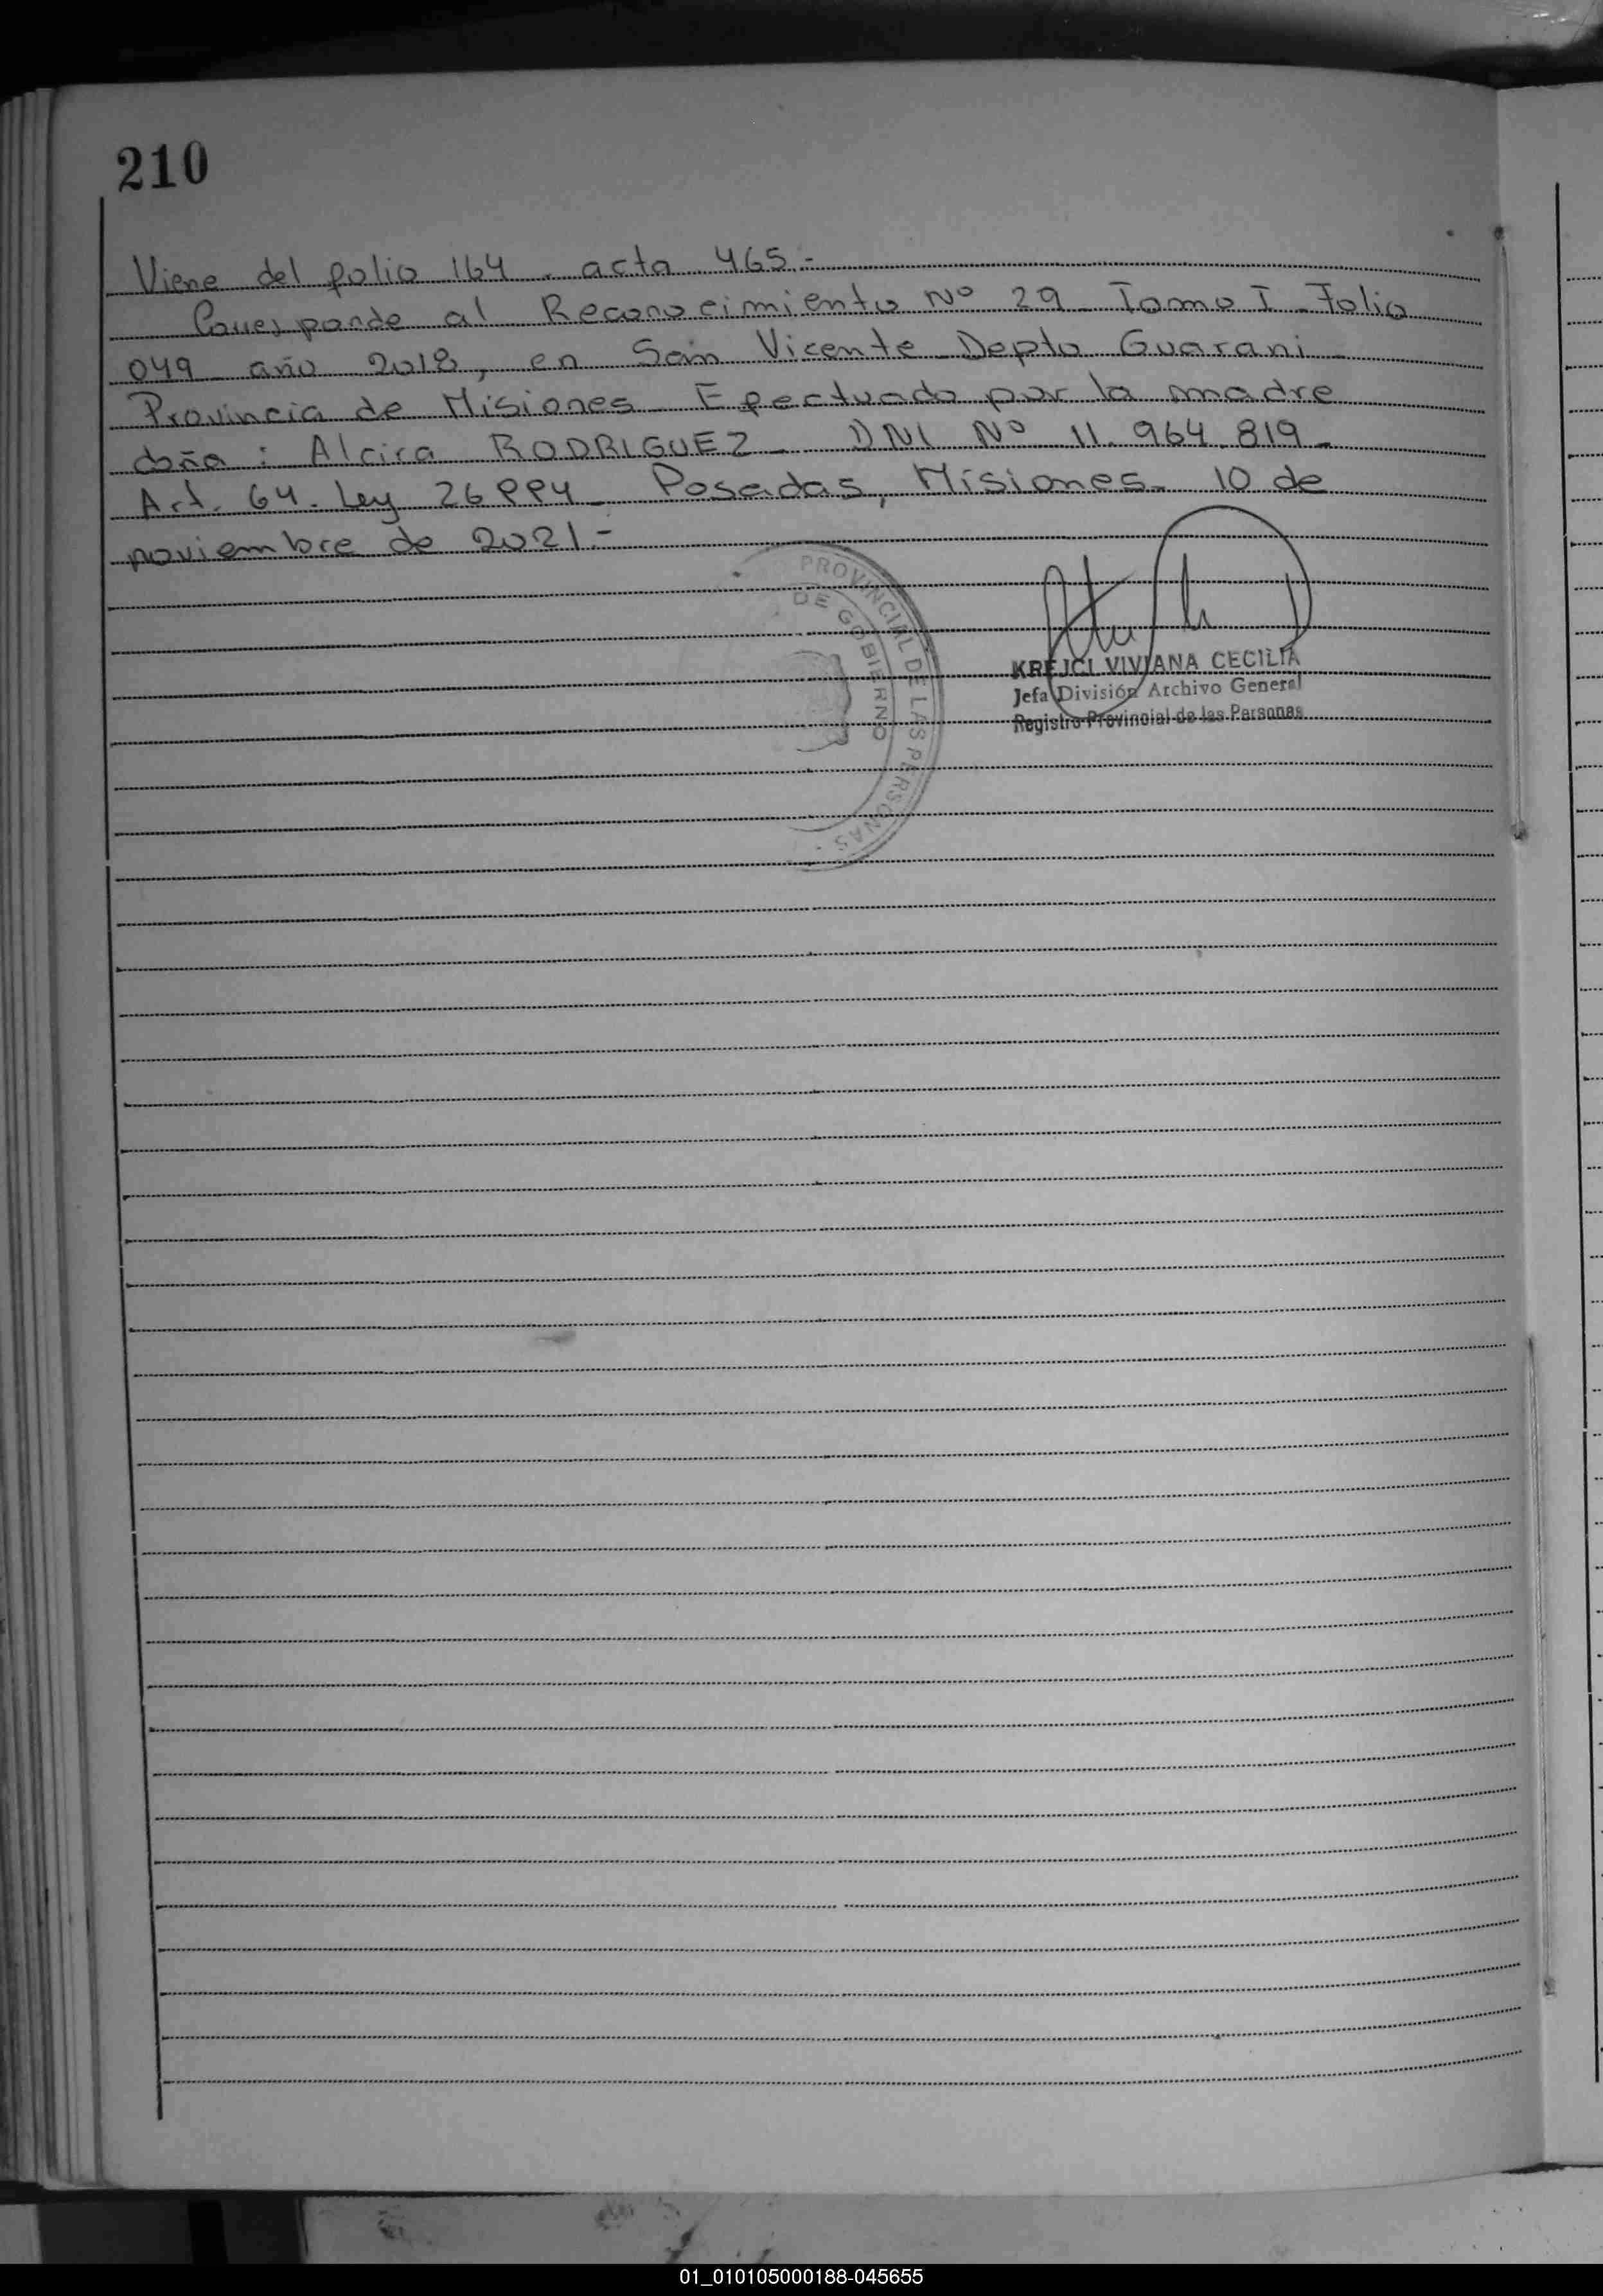 210
Viene del folio 164 - acta 465.-
Corresponde al Reconocimiento Nº 29 - Tomo I - Folio
049 - año 2018, en San Vicente - Depto Guarani -
Provincia de Misiones - Efectuado por la madre
doña : Alcira RODRIGUEZ - DNI Nº 11.964.819 -
Art. 64. Ley 26994 - Posadas, Misiones - 10 de
noviembre de 2021.-
PROVINCIAL DE LAS PERSONAS
DE GOBIERNO
KREJCI VIVIANA CECILIA
Jefa División Archivo General
Registro Provincial de las Personas
01_010105000188-045655